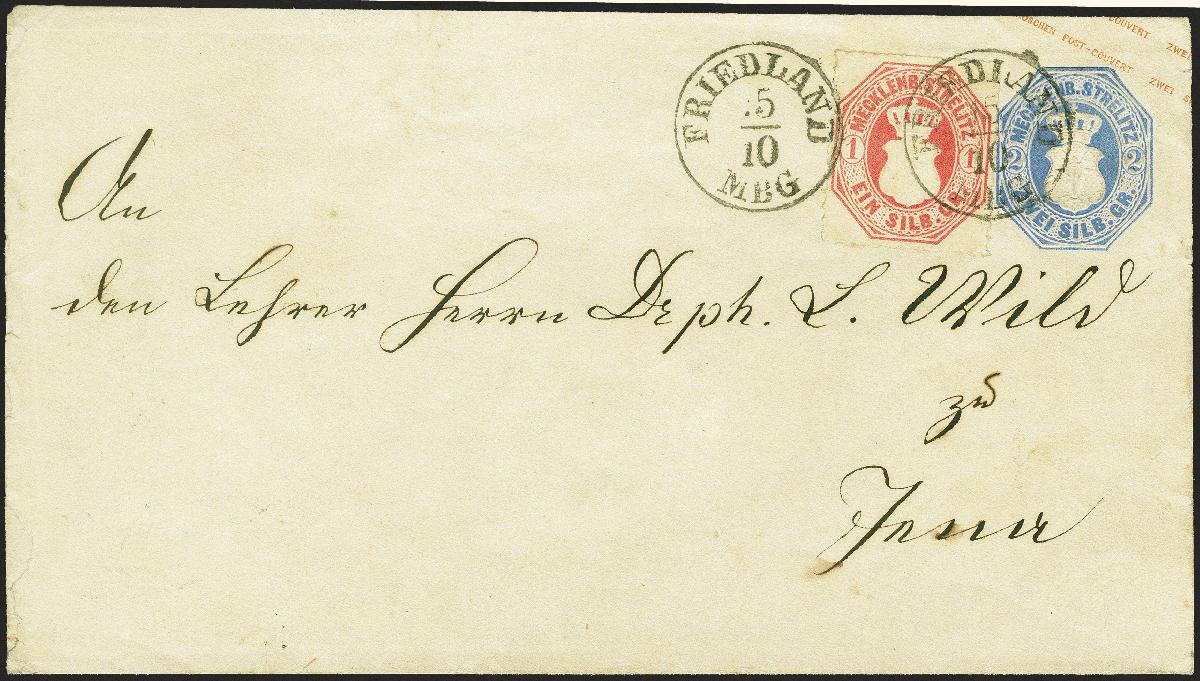 ROSCHEN POST-COUVERT ZWEI
COUVERT ZWEI
FRIEDLAND
.5
10
MBG
MECKLENB. STRELITZ
1 1
EIN SILB. GR.
FRIEDLAND
10
MECKLENB. STRELITZ
2 2
ZWEI SILB. GR.
An
den Lehrer Herrn Deph. L. Wild
zu
Jena